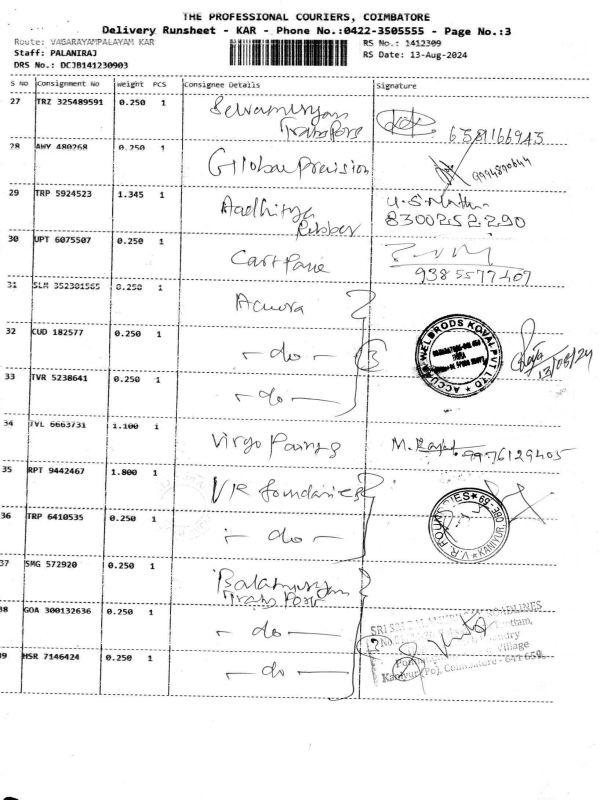 THE PROFESSIONAL COURIERS, COIMBATORE
Delivery Runsheet - KAR - Phone No.:0422-3505555 - Page No.:3
Route: VAGARAYAMPALAYAM KAR
RS No.: 1412309
Staff: PALANIRAJ
RS Date: 13-Aug-2024
DRS No.: DCJB141230903
S No Consignment No Weight PCS Consignee Details Signature
27 TRZ 325489591 0.250 1
28 AWY 480268 0.250 1 Precision 9994890644
29 TRP 5924523 1.345 1 Aadhitya Rubber 8300252290
30 UPT 6075507 0.250 1 9385577407
31 SLM 352301565 0.250 1
32 CUD 182577 0.250 1 - do - 3
33 TVR 5238641 0.250 1 - do -
13/08/24
34 TVL 6663731 1.100 1 Virgo 9976129405
35 RPT 9442467 1.800 1 VR foundaries
36 TRP 6410535 0.250 1 - do -
37 SMG 572920 0.250 1
38 GOA 300132636 0.250 1 - do -
39 HSR 7146424 0.250 1 - do -
Kaniyur (Po), Coimbatore - 641 659.